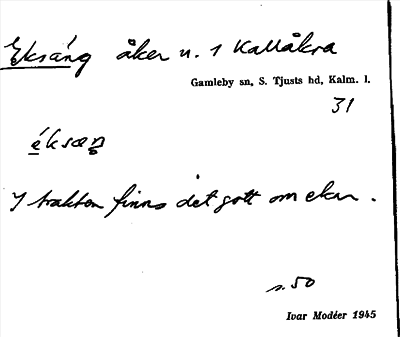 Eksáng åker u. 1 Kallåkra
Gamleby sn, S. Tjusts hd, Kalm. l.
31
éksæŋ
I trakten finns det gott om ekar.
s. 50
Ivar Modéer 1945